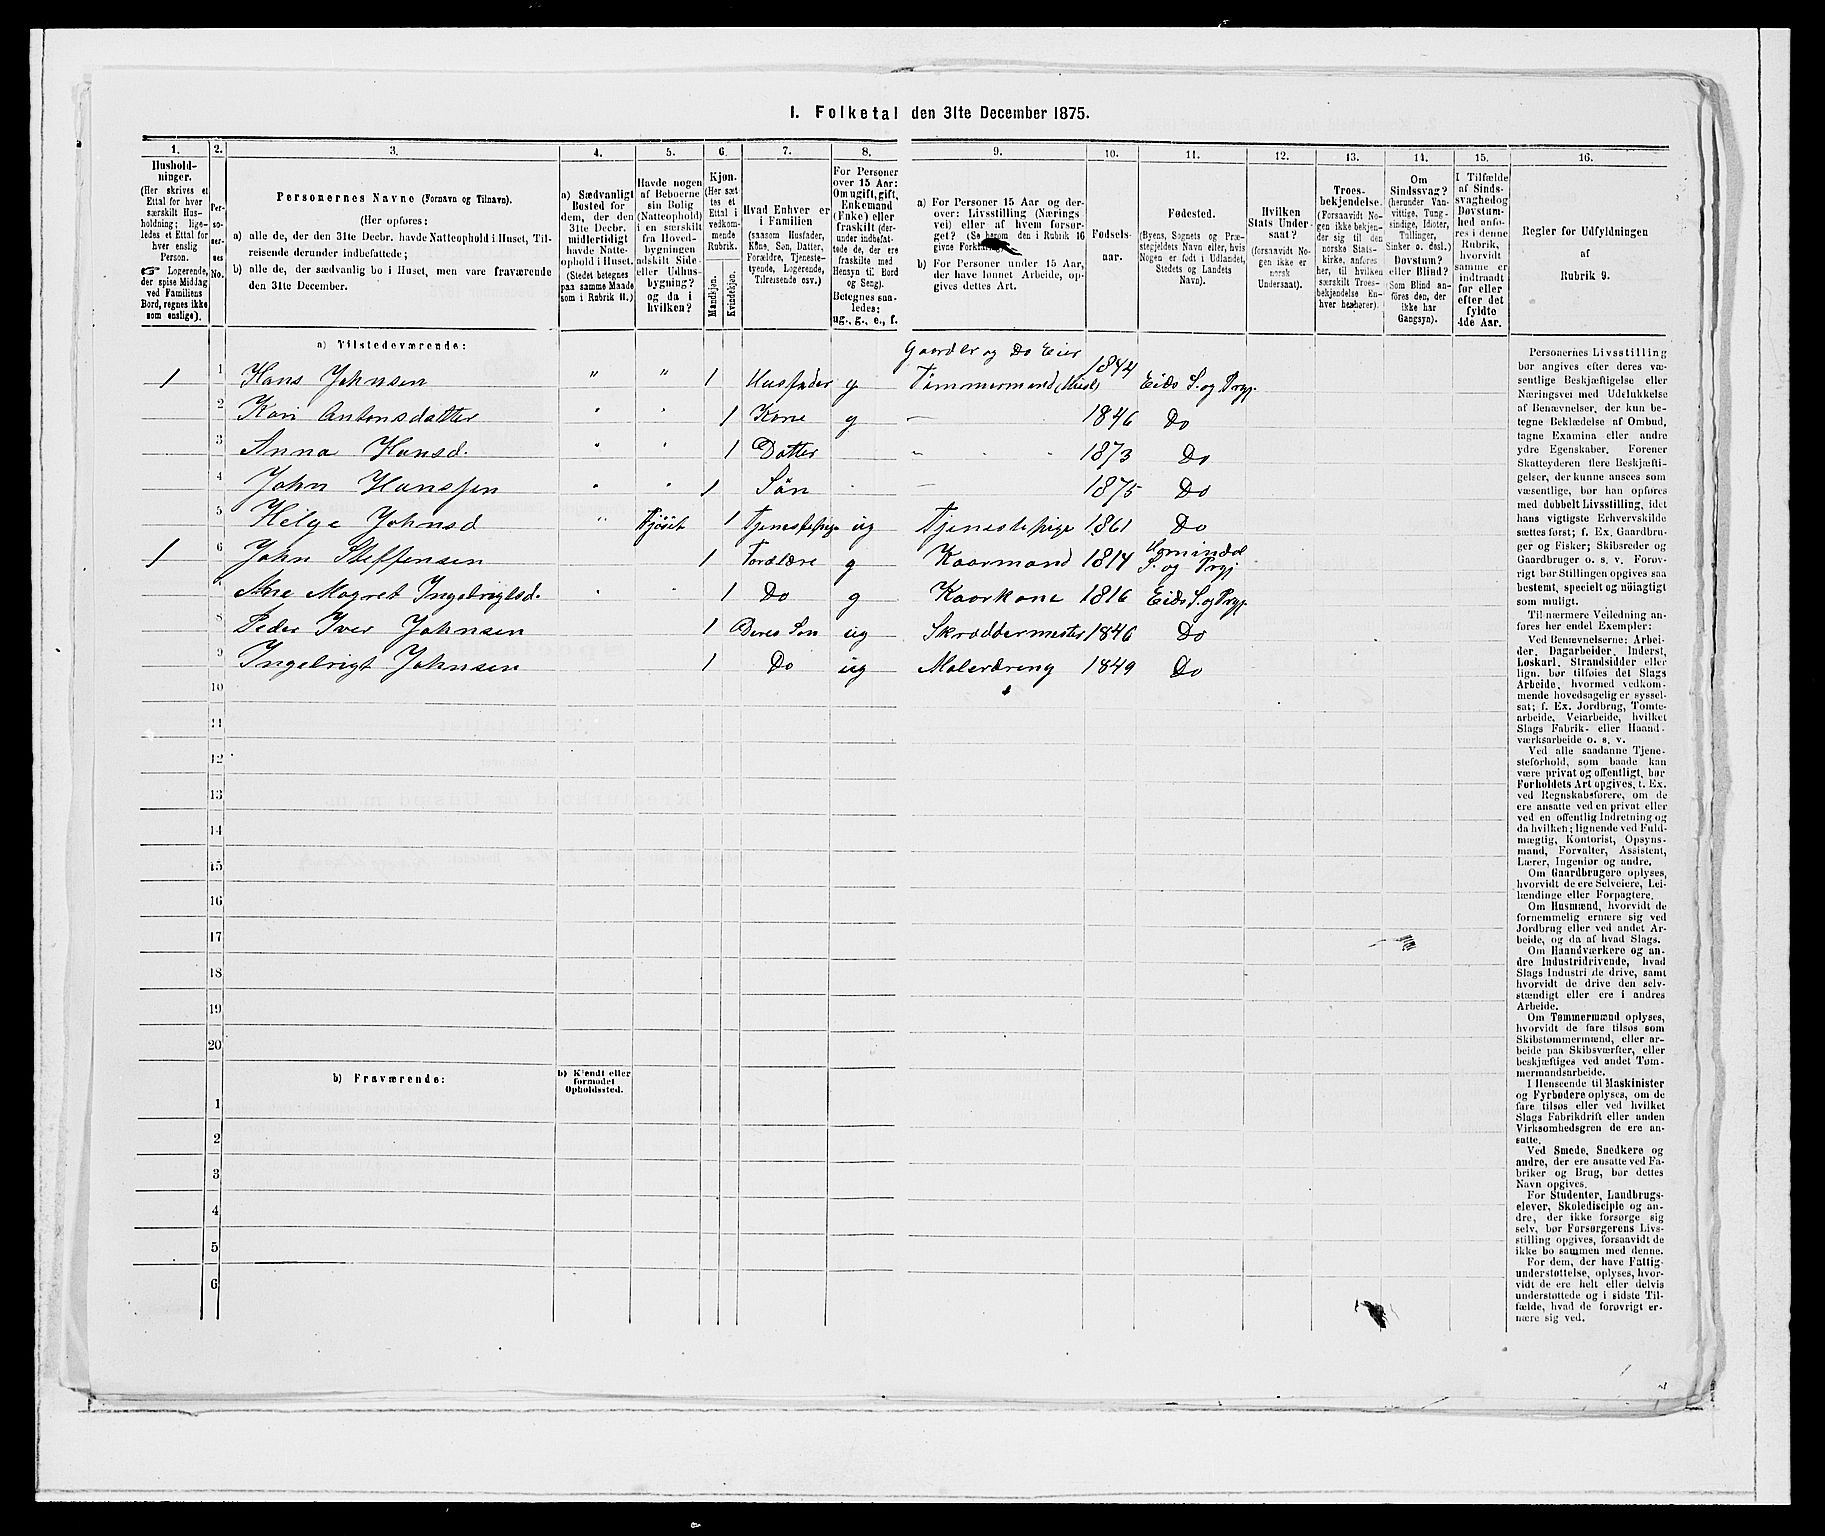 I. Folketal den 31te December 1875.
1. 2. 3. 4. 5. 6. 7. 8. 9. 10. 11. 12. 13. 14. 15. 16.
Hushold-
ninger.
(Her skrives et
Ettal for hver
særskilt Hus-
holdning; lige-
ledes et Ettal for
hver enslig
Person.
☞ Logerende,
der spise Middag
ved Familiens
Bord, regnes ikke
som enslige).
Per-
so-
ner-
nes
No.
Personernes Navne (Fornavn og Tilnavn).
(Her opføres:
a) alle de, der den 31te Decbr. havde Natteophold i Huset, Til-
reisende derunder indbefattede;
b) alle de, der sædvanlig bo i Huset, men vare fraværende
den 31te December.
a) Sædvanligt
Bosted for
dem, der den
31te Decbr.
midlertidigt
havde Natte-
ophold i Huset.
(Stedet betegnes
paa samme Maade
som i Rubrik 11.)
Havde nogen
af Beboerne
sin Bolig
(Natteophold)
i en særskilt
fra Hoved-
bygningen
adskilt Side-
eller Udhus-
bygning?
og da i
hvilken?
Kjøn.
(Her sæt-
tes et
Ettal i
vedkom-
mende
Rubrik.
Mandkjøn.
Kvindekjøn.
Hvad Enhver er
i Familien
(saasom Husfader,
Kone, Søn, Datter,
Forældre, Tjeneste-
tyende, Logerende,
Tilreisende osv.)
For Personer
over 15 Aar:
Om ugift, gift,
Enkemand
(Enke) eller
fraskilt (der-
under indbefat-
tede de, der ere
fraskilte med
Hensyn til Bord
og Seng).
Betegnes saa-
ledes:
ug., g., e., f.
a) For Personer 15 Aar og der-
over: Livsstilling (Nærings-
vei) eller af hvem forsør-
get? (Se herom den i Rubrik 16
givne Forklaring).
b) For Personer under 15 Aar,
der have lønnet Arbeide, op-
gives dettes Art.
Fødsels-
aar.
Fødested.
(Byens, Sognets og Præ-
stegjeldets Navn eller, hvis
Nogen er født i Udlandet,
Stedets og Landets
Navn).
Hvilken
Stats Under-
saat?
(forsaavidt No-
gen ikke er
norsk
Undersaat).
Troes-
bekjendelse.
(Forsaavidt No-
gen ikke bekjen-
der sig til den
norske Stats-
kirke, anføres
her, til hvilken
særskilt Troes-
bekjendelse En-
hver henhører).
Om
Sindssvag?
(herunder Van-
vittige, Tung-
sindige, Idioter,
Tullinger,
Sinker o. desl.)
Døvstum?
eller Blind?
(Som Blind an-
føres den, der
ikke har
Gangsyn).
I Tilfælde
af Sinds-
svaghed og
Døvstum-
hed anfø-
res i denne
Rubrik,
hvorvidt
samme er
indtraadt
før eller
efter det
fyldte
4de Aar.
Regler for Udfyldningen
af
Rubrik 9.
a) Tilstedeværende:
Gaardbr og Do Eier
1 1 Hans Johnsen " " 1 Husfader g Tømmermand (Huse) 1844 Eids S. og Prgj.
2 Kari Antonsdatter " " 1 Kone g — 1846 Do
3 Anna Hansd. " " 1 Datter " " " 1873 Do
4 John Hanssen " " 1 Søn — 1875 Do
5 Helge Johnsd " Fjöset 1 Tjenestepige ug Tjenestepige 1861 Do
1 6 John Steffensen 1 Forældre g Kaarmand 1814 S. og Prgj
Ane Magret Ingebrigtsd. " " 1 Do g Kaarkone 1816 Eids S. og Prgj.
8 Peder Iver Johnsen 1 Deres Søn ug Skræddermester 1846 Do
9 Ingebrigt Johnsen 1 Do ug Malerdreng 1849 Do
10
11
12
13
14
15
16
17
18
19
20
b) Fraværende:
b) Kjendt eller
formodet
Opholdssted.
1
2
3
4
5
6
Personernes Livsstilling
bør angives efter deres væ-
sentlige Beskjæftigelse eller
Næringsvei med Udelukkelse
af Benævnelser, der kun be-
tegne Beklædelse af Ombud,
tagne Examina eller andre
ydre Egenskaber. Forener
Skatteyderen flere Beskjæfti-
gelser, der kunne ansees som
væsentlige, bør han opføres
med dobbelt Livsstilling, idet
hans vigtigste Erhvervskilde
sættes først; f. Ex. Gaardbru-
ger og Fisker; Skibsreder og
Gaardbruger o. s. v. Forøv-
rigt bør Stillingen opgives saa
bestemt, specielt og nøiagtigt
som muligt.
Til nærmere Veiledning an-
føres her endel Exempler:
Ved Benævnelserne: Arbei-
der, Dagarbeider, Inderst,
Løskarl, Strandsidder eller
lign. bør tilføies det Slags
Arbeide, hvormed vedkom-
mende hovedsagelig er syssel-
sat; f. Ex. Jordbrug, Tomte-
arbeide, Veiarbeide, hvilket
Slags Fabrik- eller Haand-
værksarbeide o. s. v.
Ved alle saadanne Tjene-
steforhold, som baade kan
være privat og offentligt, bør
Forholdets Art opgives, t. Ex.
ved Regnskabsførere, om de
ere ansatte ved en privat eller
ved en offentlig Indretning og
da hvilken; lignende ved Fuld-
mægtig, Kontorist, Opsyns-
mand, Forvalter, Assistent,
Lærer, Ingeniør og andre.
Om Gaardbrugere oplyses,
hvorvidt de ere Selveiere, Lei-
lændinge eller Forpagtere.
Om Husmænd, hvorvidt de
fornemmelig ernære sig ved
Jordbrug eller ved andet Ar-
beide, og da af hvad Slags.
Om Haandværkere og an-
dre Industridrivende, hvad
Slags Industri de drive, samt
hvorvidt de drive den selv-
stændigt eller ere i andres
Arbeide.
Om Tømmermænd oplyses,
hvorvidt de fare tilsøs som
Skibstømmermænd, eller ar-
beide paa Skibsværfter, eller
beskjæftiges ved andet Tøm-
mermandsarbeide.
I Henseende til Maskinister
og Fyrbødere oplyses, om de
fare tilsøs eller ved hvilket
Slags Fabrikdrift eller anden
Virksomhedsgren de ere an-
satte.
Ved Smede, Snedkere og
andre, der ere ansatte ved Fa-
briker og Brug, bør dettes
Navn opgives.
For Studenter, Landbrugs-
elever, Skoledisciple og an-
dre, der ikke forsørge sig
selv, bør Forsørgerens Livs-
stilling opgives, forsaavidt de
ikke bo sammen med denne.
For dem, der have Fattig-
understøttelse, oplyses, hvor-
vidt de ere helt eller delvis
understøttede og i sidste Til-
fælde, hvad de forøvrigt er-
nære sig ved.